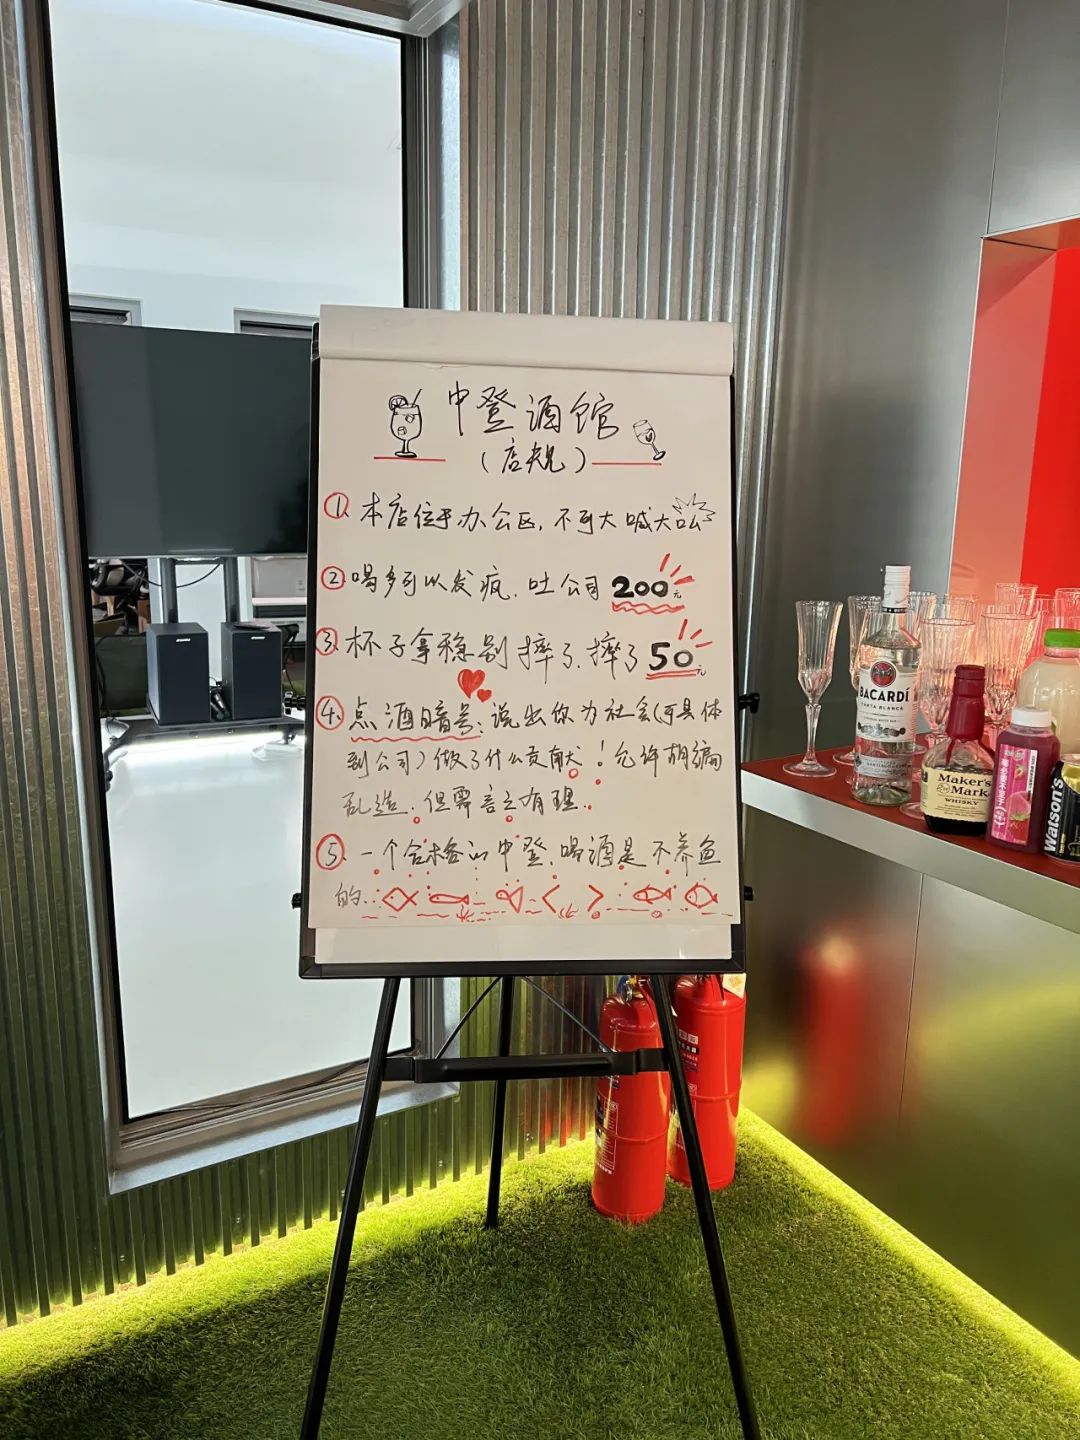 中登酒馆
(店规)
①、本店位于办公区，不可大喊大叫
②、喝多可以发疯，吐公司200元
③、杯子拿稳别摔了，摔了50元
④、点酒暗号：说出你为社会(可具体
到公司)做了什么贡献！允许胡编
乱造，但需言之有理。
⑤、一个合格的中登，喝酒是不养鱼
的.
BACARDÍ
CARTA BLANCA
Maker's
Mark
WHISKY
Watson's